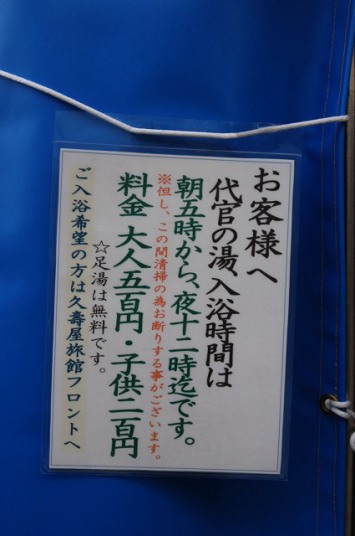 お客様へ
代官の湯、入浴時間は
朝五時から、夜十二時迄です。
※但し、この間清掃の為お断りする事がございます。
料金 大人五百円・子供二百円
☆足湯は無料です。
ご入浴希望の方は久壽屋旅館フロントへ